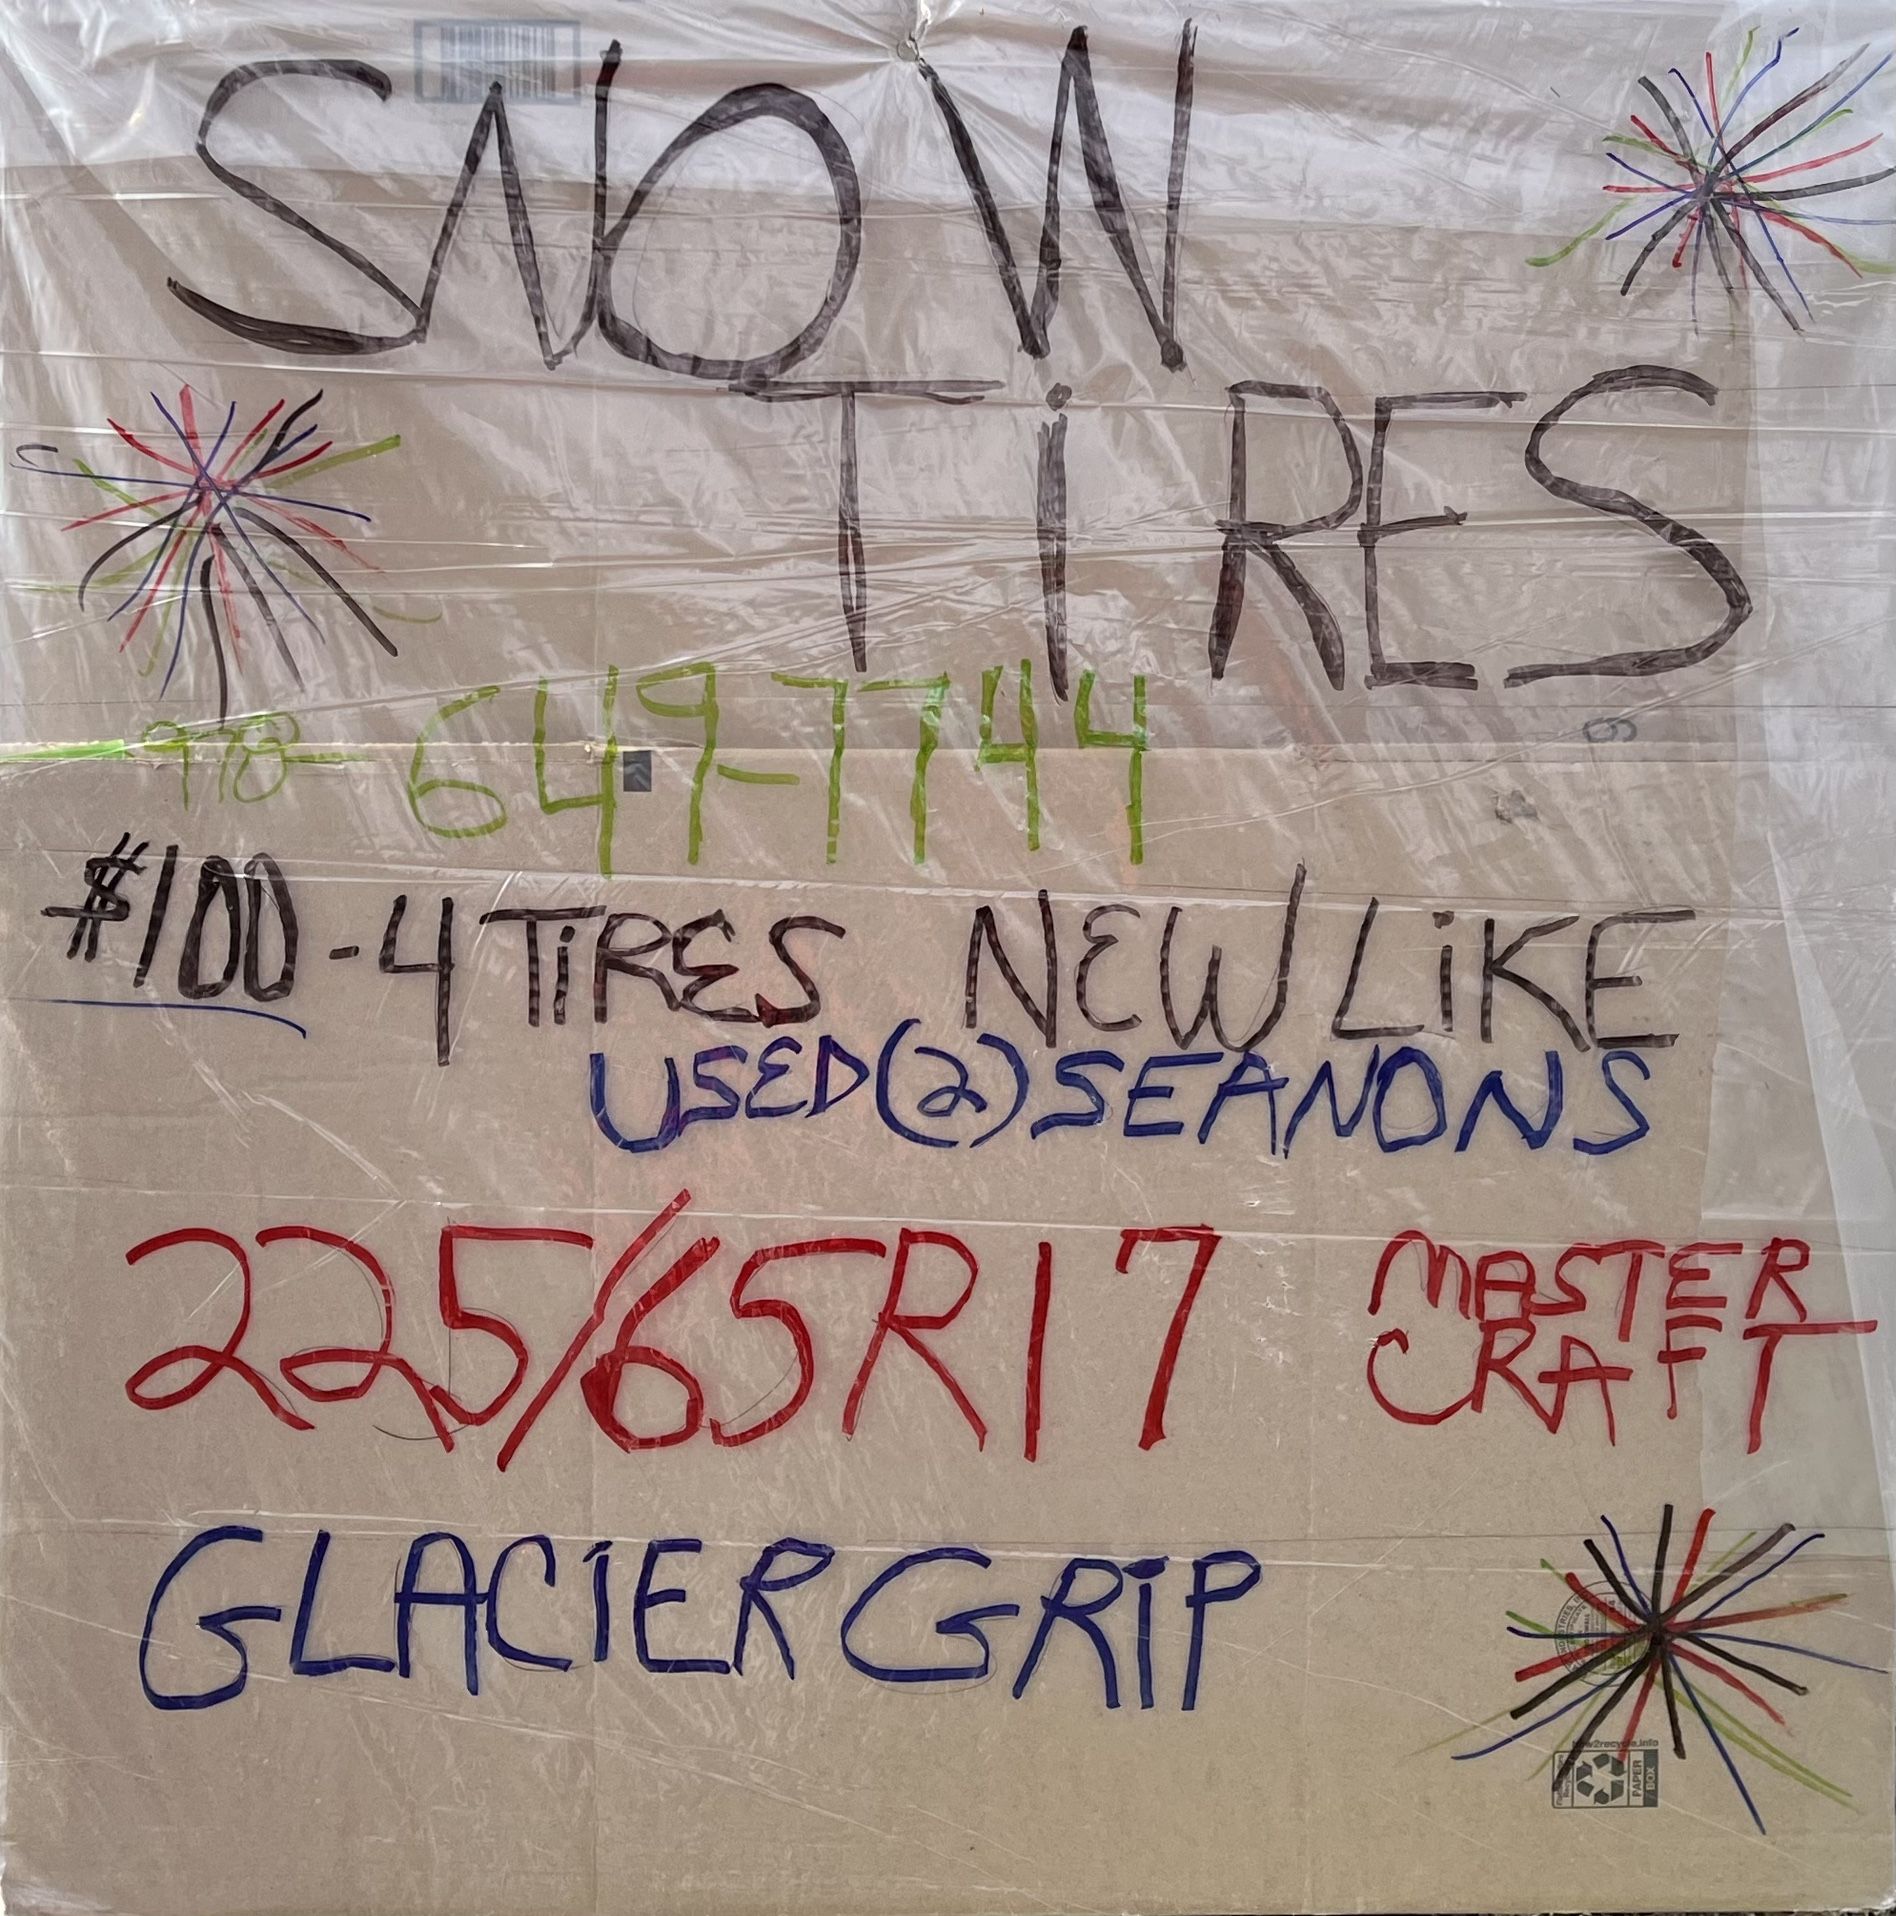 SNOW
TiRES
978-649-7744
$100-4 TiRES NEW LiKE
USED (2) SEANONS
225/65R17 MASTER
CRAFT
GLACiER GRiP
how2recycle.info
PAPER
BOX